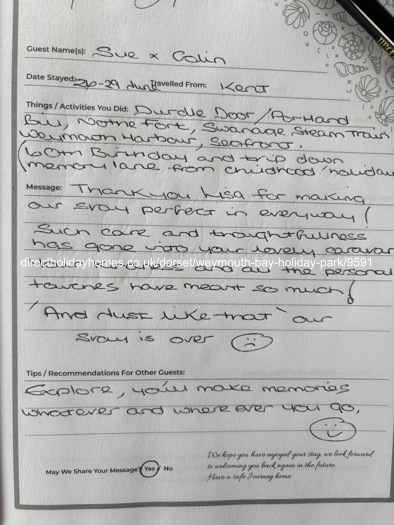 Guest Name(s): Sue x Colin
Date Stayed: 26-29 June Travelled From: Kent
Things / Activities You Did: Durdle Door / Portland
Bill, Nothe Fort, Swanage Steam Train
Weymouth Harbour, Seafront.
(60th Birthday and trip down
memory lane from childhood holiday
Message: Thankyou Lisa for making
our stay perfect in everyway!
Such care and thoughtfulness
has gone into your lovely caravan
directholidayhomes.co.uk/dorset/weymouth-bay-holiday-park/9591
and all the personal
touches have meant so much!
'And just like that' our
stay is over
Tips / Recommendations For Other Guests:
Explore, you'll make memories
whatever and where ever you go,
May We Share Your Message? Yes / No
We hope you have enjoyed your stay, we look forward
to welcoming you back again in the future.
Have a safe Journey home.